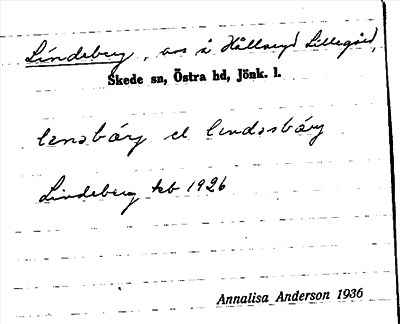 Lindeberg, avs å Hållsryd Lillegård,
Skede sn, Östra hd, Jönk. l.
lenəbárg el lindəsbárg
Lindeberg kb 1926
Annalisa Anderson 1936